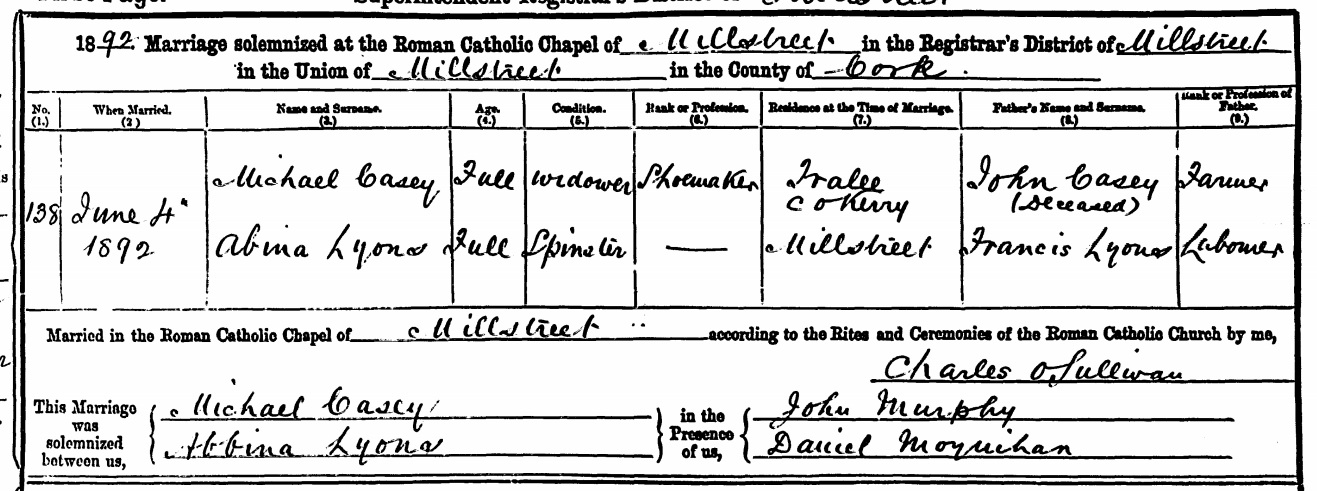 1892. Marriage solemnized at the Roman Catholic Chapel of Millstreet in the Registrar's District of Millstreet
in the Union of Millstreet in the County of Cork.
No. (1.) When Married. (2) Name and Surname. (3.) Age. (4.) Condition. (5.) Rank or Profession. (6.) Residence at the Time of Marriage. (7.) Father's Name and Surname. (8.) Rank or Profession of Father. (9.)
138 June 4th 1892
Michael Casey Full widower Shoemaker Tralee Co Kerry John Casey (Deceased) Farmer
Abina Lyons Full Spinster — Millstreet Francis Lyons Labourer
Married in the Roman Catholic Chapel of Millstreet according to the Rites and Ceremonies of the Roman Catholic Church by me,
Charles O'Sullivan
This Marriage was solemnized between us,
Michael Casey
Abbina Lyons
in the Presence of us,
John Murphy
Daniel Moynihan